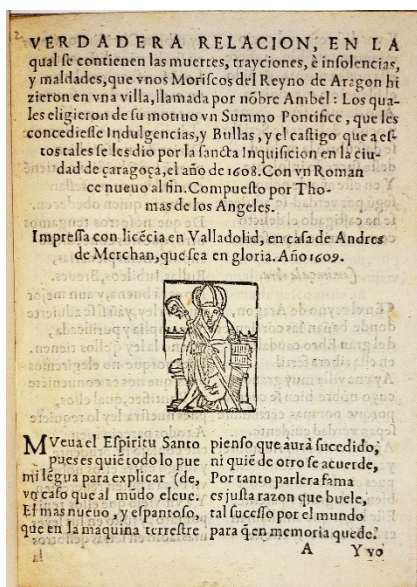 VERDADERA RELACION, EN LA
qual se contienen las muertes, trayciones, è insolencias,
y maldades, que vnos Moriscos del Reyno de Aragon hi
zieron en vna villa, llamada por nõbre Ambel: Los qua-
les eligieron de su motiuo vn Summo Pontifice, que les
concediesse Indulgencias, y Bullas, y el castigo que a es-
tos tales se les dio por la sancta Inquisicion en la ciu-
dad de çaragoça, el año de 1608. Con vn Roman
ce nueuo al fin. Compuesto por Tho-
mas de los Angeles.
Impressa con licẽcia en Valladolid, en casa de Andres
de Merchan, que sea en gloria. Año 1609.
MVeua el Espiritu Santo
pues es quiẽ todo lo pue
mi lẽgua para explicar (de,
vn caso que al mũdo eleue.
El mas nueuo, y espantoso,
que en la maquina terrestre
pienso que aurà sucedido,
ni quiẽ de otro se acuerde,
Por tanto parlera fama
es justa razon que buele,
tal sucesso por el mundo
para q̃ en memoria quede.
A Y vo